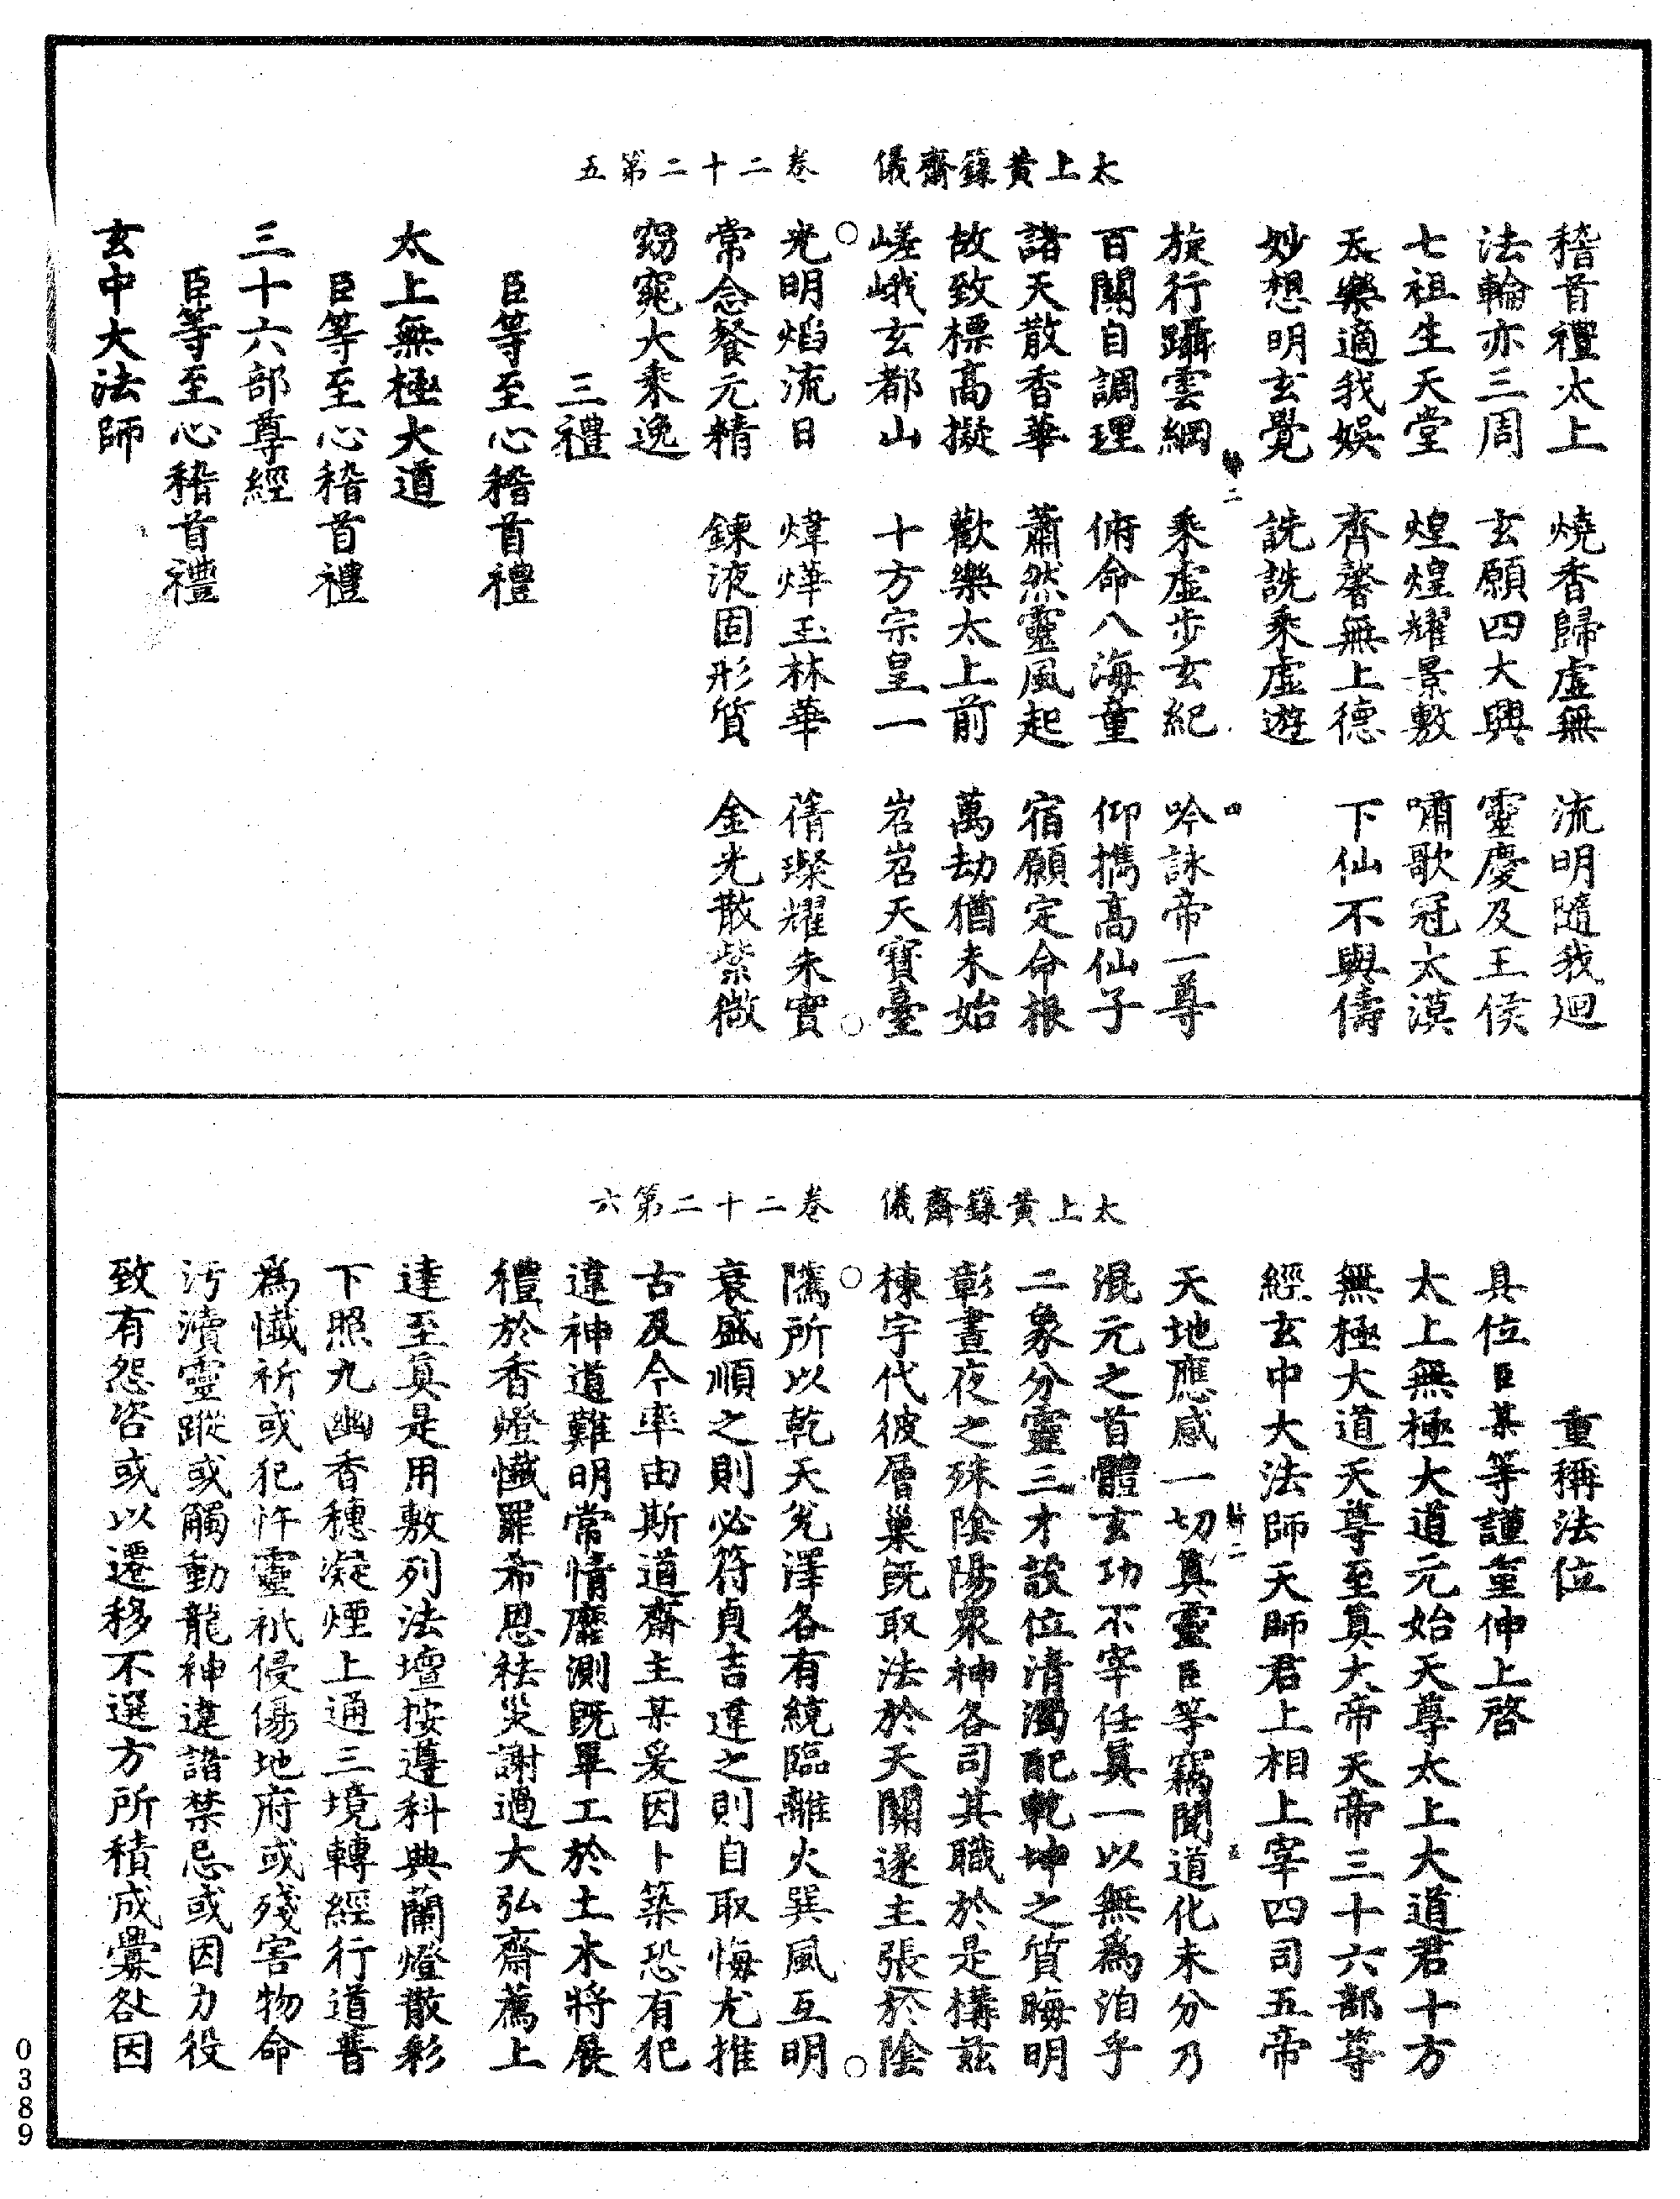 太上黃籙齋儀　卷二十二第五
稽首禮太上　燒香歸虛無　流明隨我迴
法輪亦三周　玄願四大興　靈慶及王侯
七祖生天堂　煌煌耀景敷　嘯歌冠太漠
天樂適我娛　齊馨無上德　下仙不與儔
妙想明玄覺　詵詵乘虛遊
旋行躡雲綱　乘虛步玄紀　吟詠帝一尊
百關自調理　俯命八海童　仰攜高仙子
諸天散香華　蕭然靈風起　宿願定命根
故致標高擬　歡樂太上前　萬劫猶未始
嵯峨玄都山　十方宗皇一　岧岧天寶臺
光明焰流日　煒燁玉林華　蒨璨耀朱實
常念餐元精　鍊液固形質　金光散紫微
窈窕大乘逸
三禮
臣等至心稽首禮
太上無極大道
臣等至心稽首禮
三十六部尊經
臣等至心稽首禮
玄中大法師
太上黃籙齋儀　卷二十二第六
重稱法位
具位臣某等謹重伸上啓
太上無極大道元始天尊太上大道君十方
無極大道天尊至真大帝天帝三十六部尊
經玄中大法師天師君上相上宰四司五帝
天地應感一切真靈臣等竊聞道化未分乃
混元之首體玄功不宰任真一以無為洎乎
二象分靈三才設位清濁配乾坤之質晦明
彰晝夜之殊陰陽眾神各司其職於是構茲
棟宇代彼層巢既取法於天關遂主張於陰
隲所以乾天兌澤各有統臨離火巽風互明
衰盛順之則必符貞吉違之則自取悔尤推
古及今率由斯道齋主某爰因卜築恐有犯
違神道難明常情靡測既畢工於土木將展
禮於香燈懺罪希恩祛災謝過大弘齋薦上
達至真是用敷列法壇按遵科典蘭燈散彩
下照九幽香穗凝煙上通三境轉經行道普
為懺祈或犯忤靈祇侵傷地府或殘害物命
污瀆靈蹤或觸動龍神違諧禁忌或因力役
致有怨咨或以遷移不選方所積成釁咎因
0389